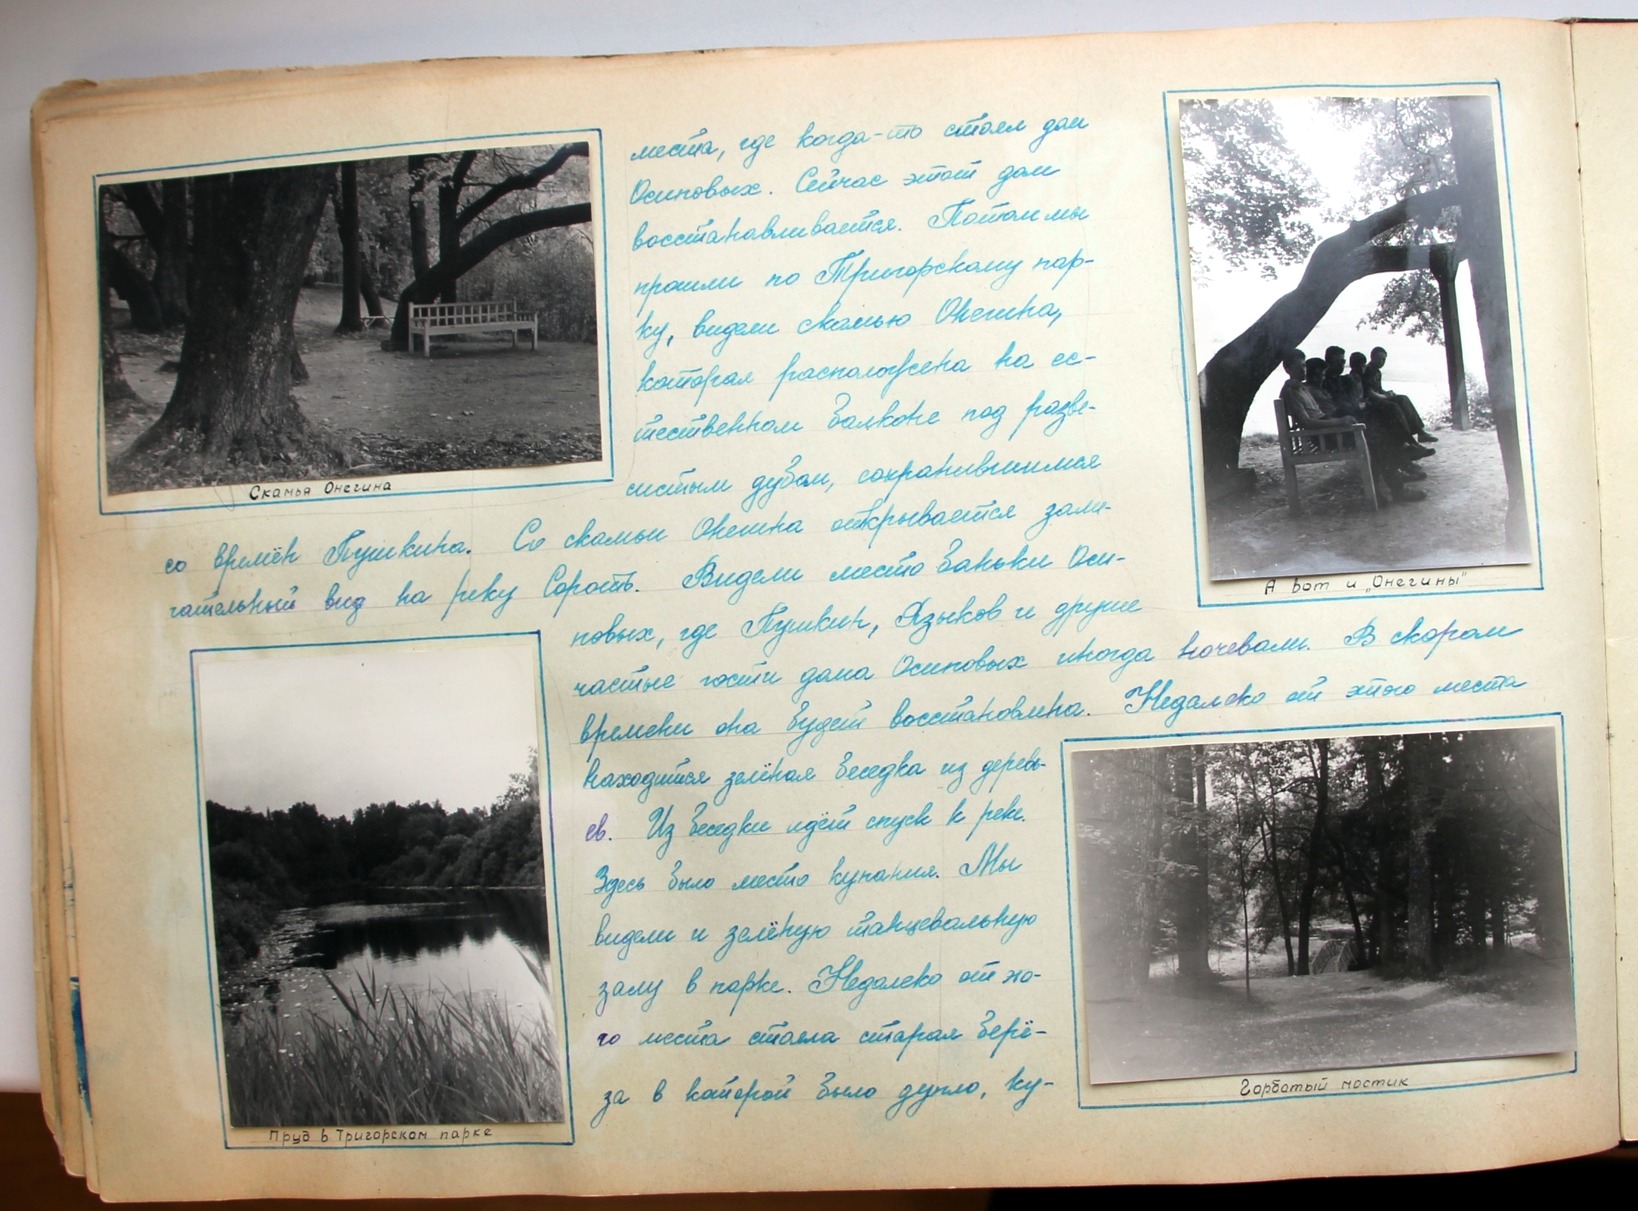 места, где когда-то стоял дом
Осиповых. Сейчас этот дом
восстанавливается. Потом мы
прошли по Тригорскому пар-
ку, видели скамью Онегина,
которая расположена на ес-
тественном балконе под разве-
систым дубом, сохранившимся
со времён Пушкина. Со скамьи Онегина открывается заме-
чательный вид на реку Сороть. Видели место баньки Оси-
повых, где Пушкин, Языков и другие
частые гости дома Осиповых иногда ночевали. В скором
времени она будет восстановлена. Недалеко от этого места
находится зелёная беседка из деревь-
ев. Из беседки идёт спуск к реке.
Здесь было место купания. Мы
видели и зелёную танцевальную
залу в парке. Недалеко от
го места стояла старая берё-
за в которой было дупло, ку-
Скамья Онегина
А вот и „Онегины"
Пруд в Тригорском парке
Горбатый мостик